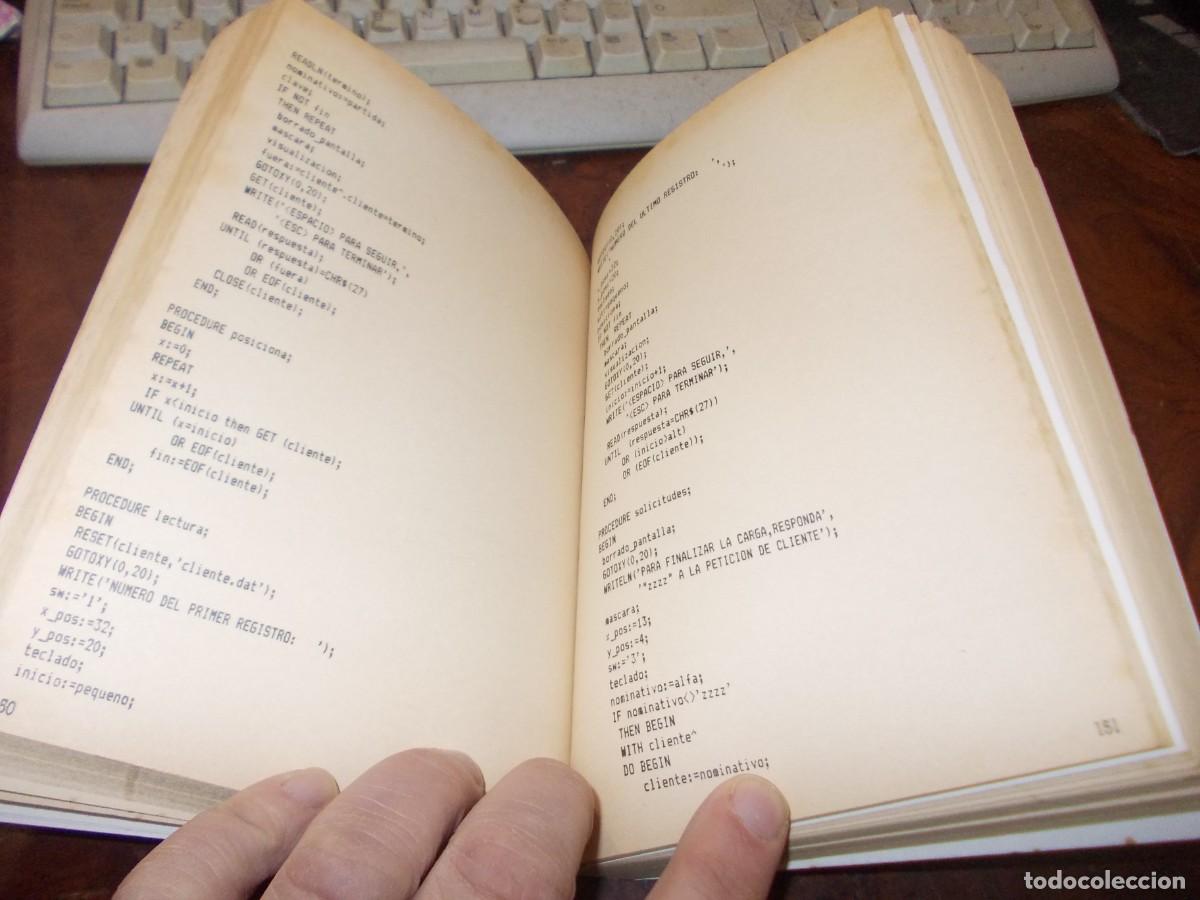 READLN(termino);
nominativo:=partida;
clave;
IF NOT fin
THEN REPEAT
borrado_pantalla;
mascara;
visualizacion;
fuera:=cliente^.cliente=termino;
GOTOXY(0,20);
GET(cliente);
WRITE('<ESPACIO> PARA SEGUIR,',
'<ESC> PARA TERMINAR');
READ(respuesta);
UNTIL (respuesta)=CHR$(27)
OR (fuera)
OR EOF(cliente);
CLOSE(cliente);
END;
PROCEDURE posiciona;
BEGIN
x:=0;
REPEAT
x:=x+1;
IF x<inicio then GET (cliente);
UNTIL (x=inicio)
OR EOF(cliente);
fin:=EOF(cliente);
END;
PROCEDURE lectura;
BEGIN
RESET(cliente,'cliente.dat');
GOTOXY(0,20);
WRITE('NUMERO DEL PRIMER REGISTRO: ');
sw:='1';
x_pos:=32;
y_pos:=20;
teclado;
inicio:=pequeno;
50
NUMERO DEL ULTIMO REGISTRO: ',');
IF NOT fin
THEN REPEAT
borrado_pantalla;
mascara;
visualizacion;
GOTOXY(0,20);
GET(cliente);
inicio:=inicio+1;
WRITE('<ESPACIO> PARA SEGUIR,',
'<ESC> PARA TERMINAR');
READ(respuesta);
UNTIL (respuesta=CHR$(27))
OR (inicio)alt)
OR (EOF(cliente));
END;
PROCEDURE solicitudes;
BEGIN
borrado_pantalla;
GOTOXY(0,20);
WRITELN('PARA FINALIZAR LA CARGA,RESPONDA',
'"zzzz" A LA PETICION DE CLIENTE');
mascara;
x_pos:=13;
y_pos:=4;
sw:='3';
teclado;
nominativo:=alfa;
IF nominativo<>'zzzz'
THEN BEGIN
WITH cliente^
DO BEGIN
cliente:=nominativo;
151
todocoleccion